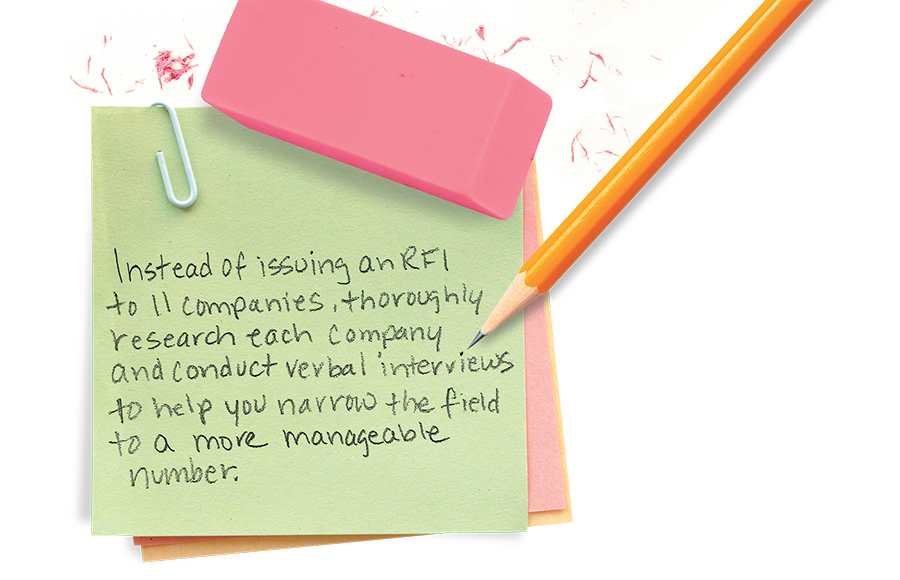 Instead of issuing an RFI
to 11 companies, thoroughly
research each company
and conduct verbal interviews
to help you narrow the field
to a more manageable
number.